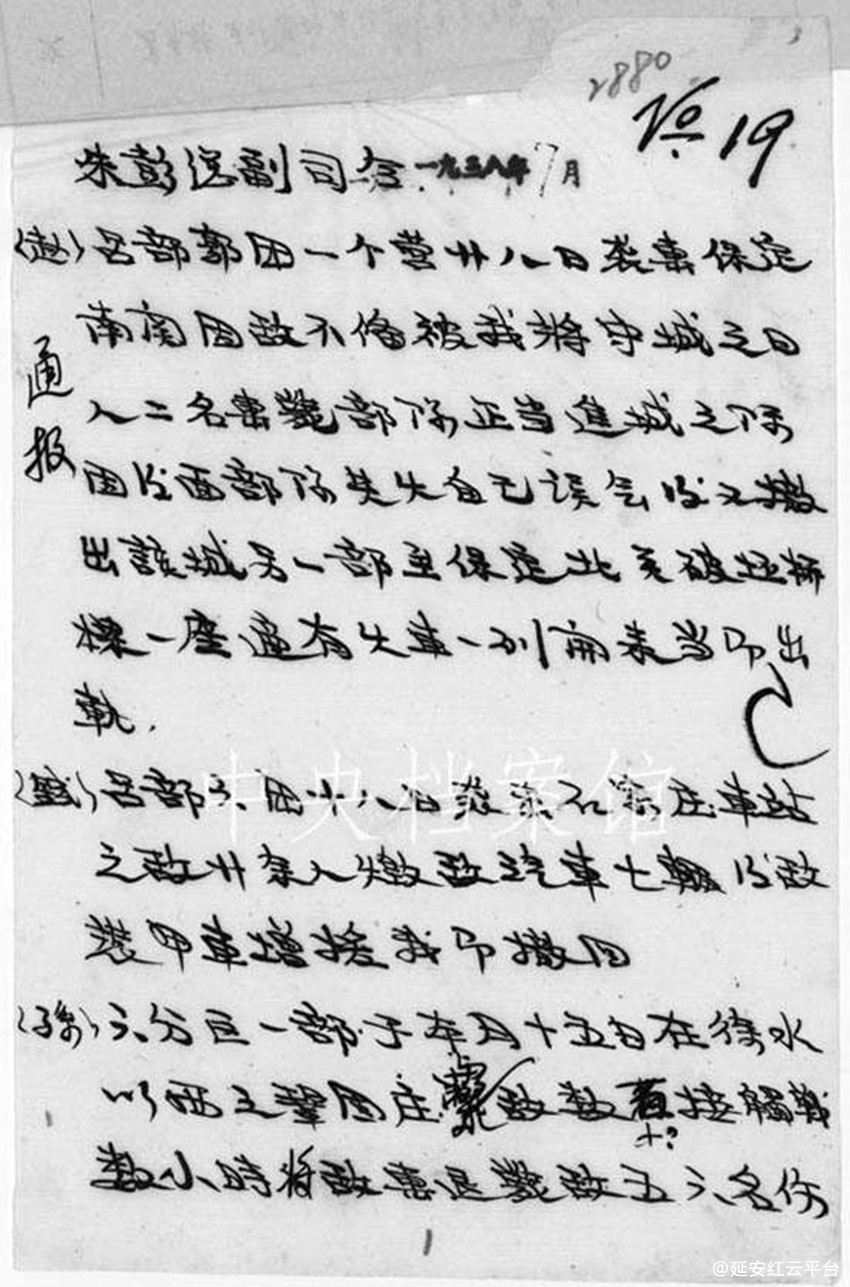 2880
No 19
朱彭 副司令 一九三八年7月
(赵)吕部郭团一个营廿八日袭击保定
南关因敌不备被我将守城之日
通报
人二名击毙部队正当进城之际
因后面部队失火自己误会后又撤
出該城另一部至保定北关破坏桥
樑一座适有火车一列开来当即出
軌.
吕部六团十八日袭击石家庄車站
之敌廿余人燬敌汽車七辆后敌
装甲車增援我即撤回
(孙)六分区一部于本月十五日在徐水
以西之 固庄 敌数百接觸战
十?
数小時将敌击退毙敌五六名伤
1
中央档案馆
@延安红云平台